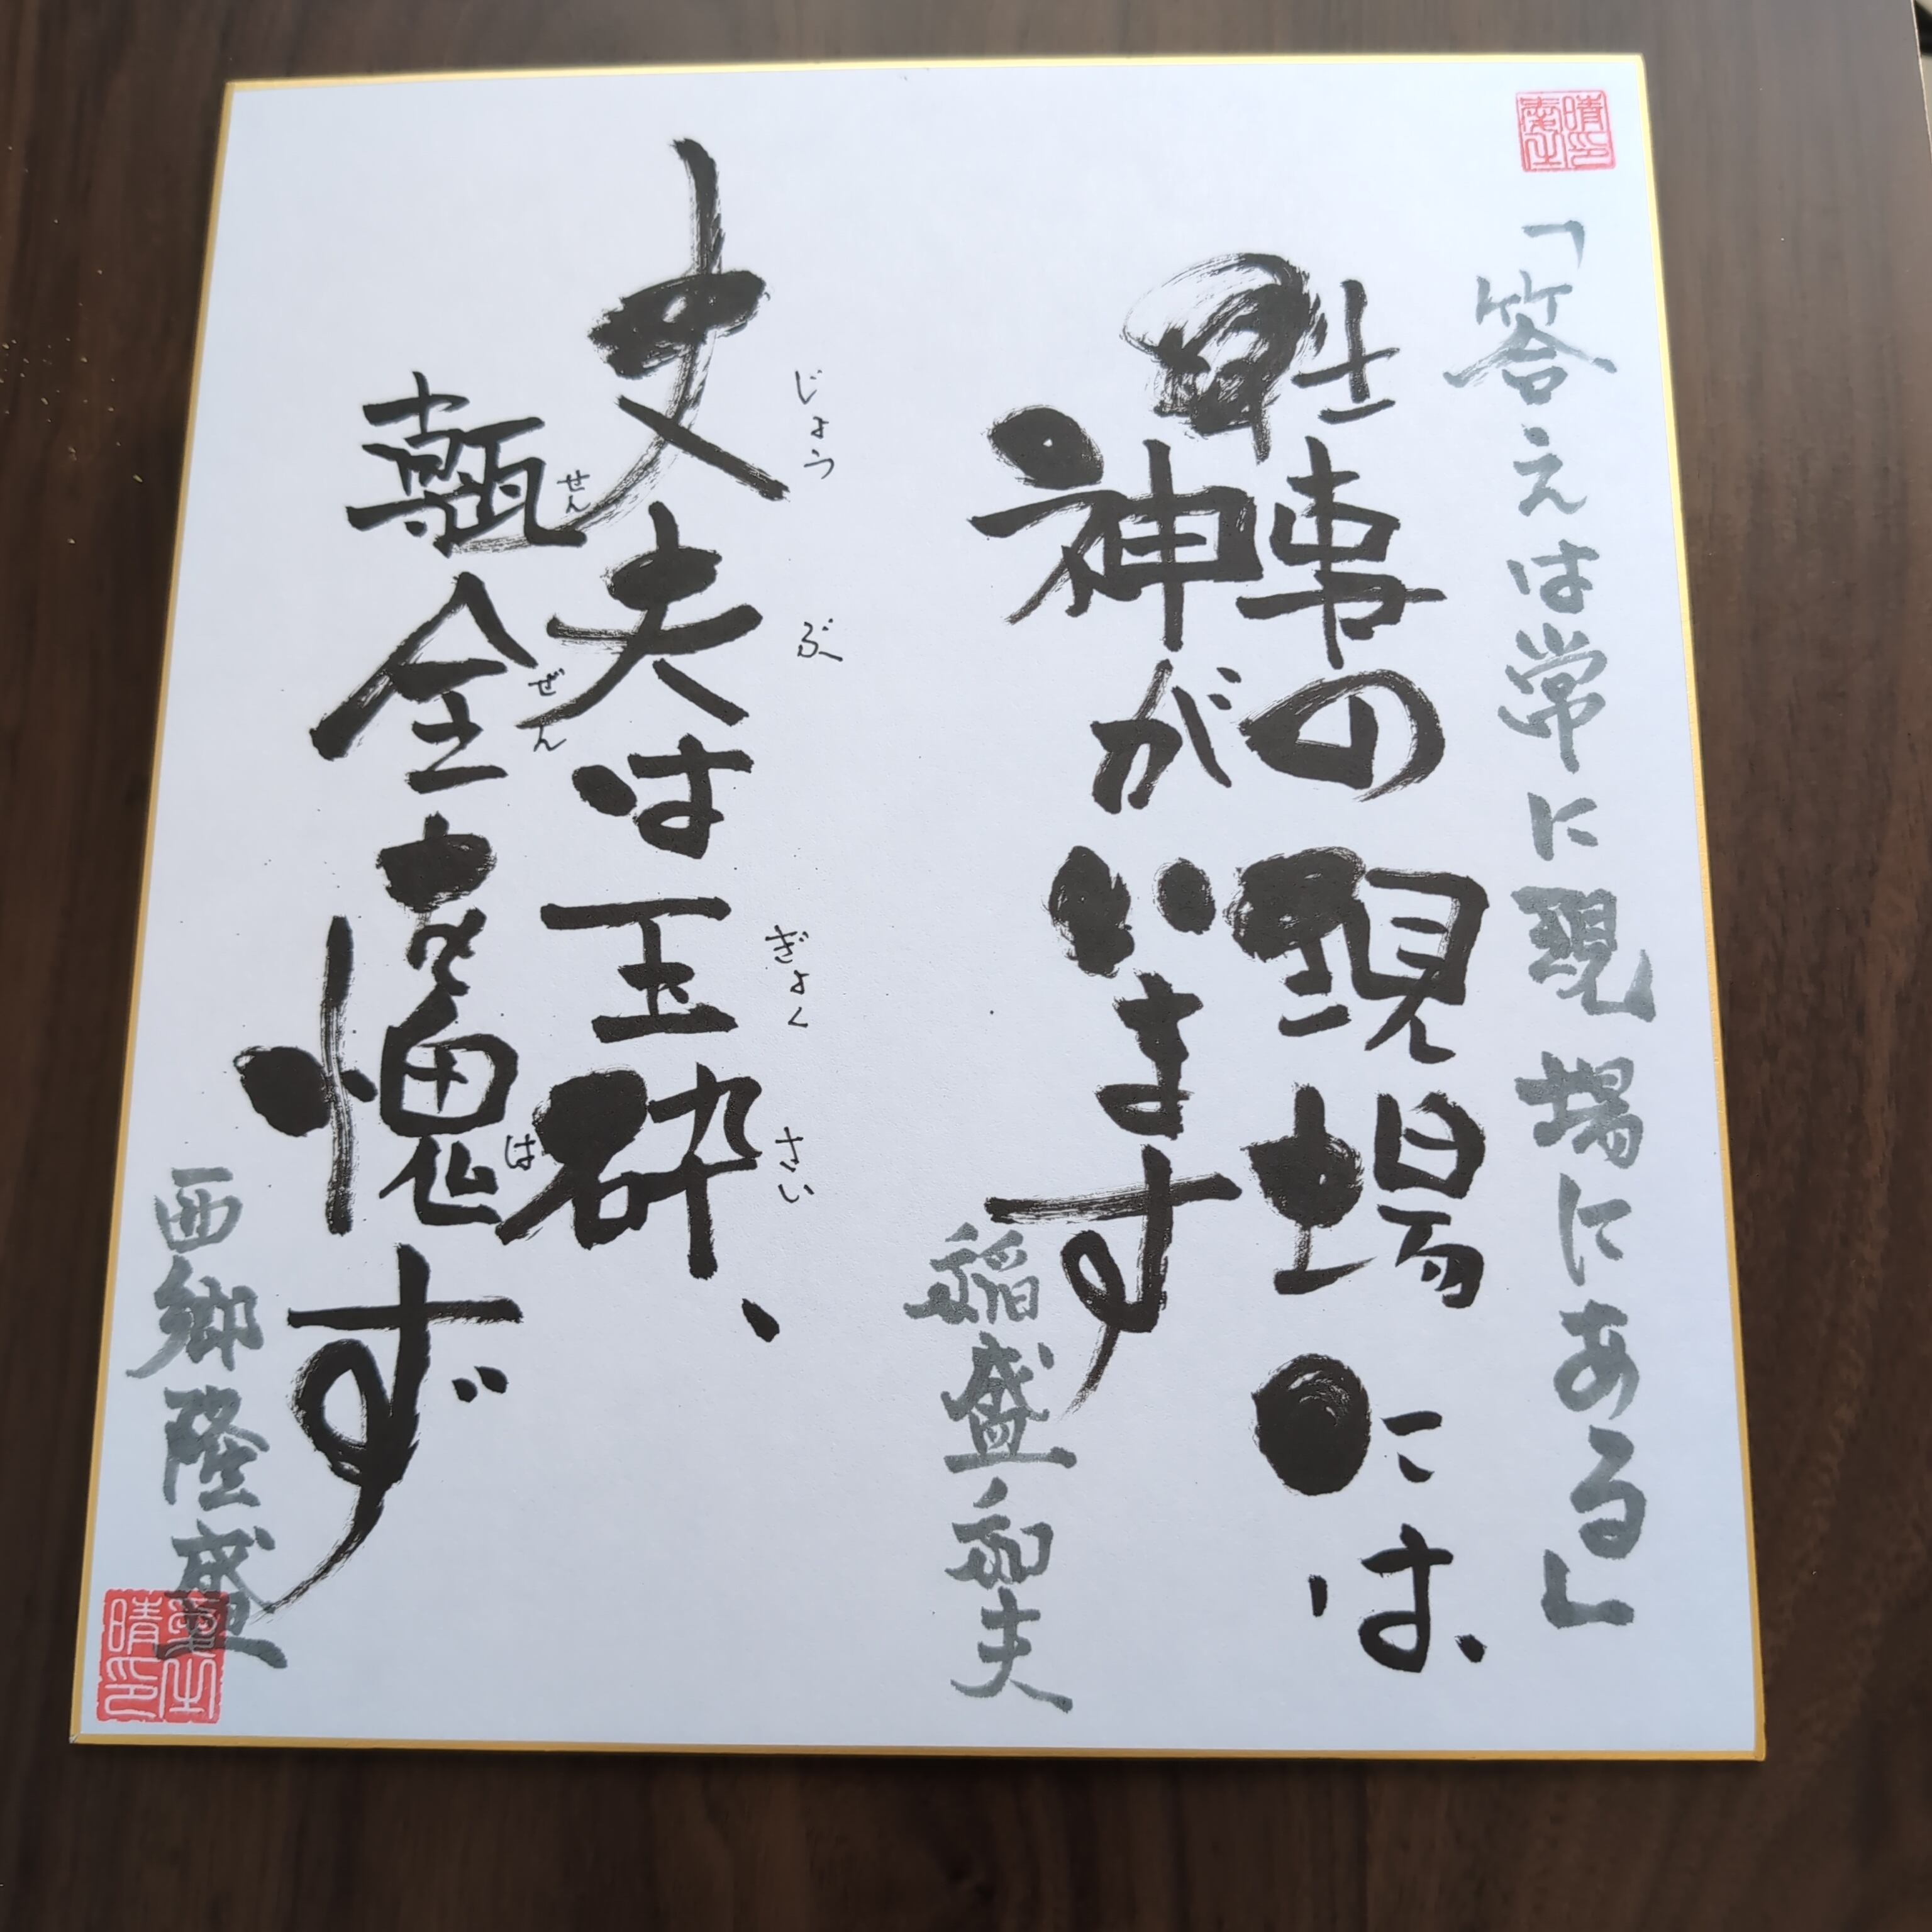 「答えは常に現場にある」
仕事の現場には、
神がいます
稲盛和夫
じょうぶ ぎょくさい
丈夫は玉砕、
せんぜん は
甎全を愧ず
西郷隆盛